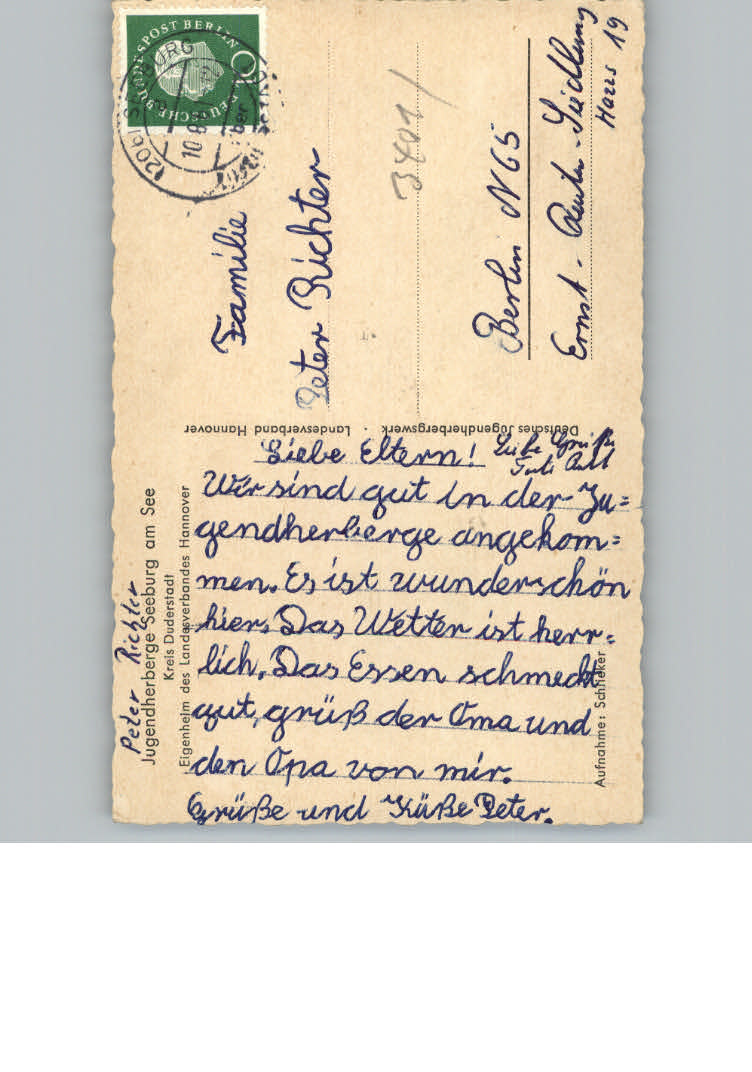 Peter Richter
Jugendherberge Seeburg am See
Kreis Duderstadt
Eigenheim des Landesverbandes Hannover
Liebe Eltern!
Wir sind gut in der Ju=
gendherberge angekom=
men. Es ist wunderschön
hier. Das Wetter ist herr=
lich. Das Essen schmeckt
gut, grüß der Oma und
den Opa von mir.
Grüße und Küße Peter.
Liebe Grüße
Aufnahme: Schlieker
Deutsches Jugendherbergswerk · Landesverband Hannover
DEUTSCHE BUNDESPOST BERLIN
10
SEEBURG
10.8.
Familie
Peter Richter
3401/
Berlin N 65
Ernst-Reuter-Siedlung
Haus 19